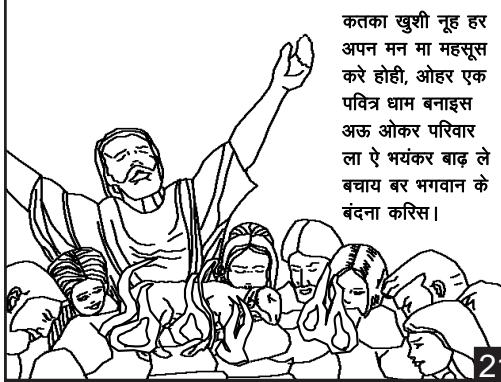 कतका खुशी नूह हर
अपन मन मा महसूस
करे होही, ओहर एक
पवित्र धाम बनाइस
अऊ ओकर परिवार
ला ऐ भयंकर बाढ़ ले
बचाय बर भगवान के
बंदना करिस।